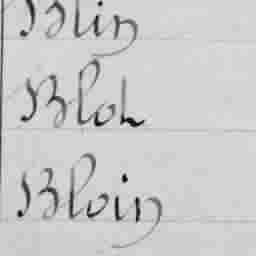 Blin
Bloh
Bloin